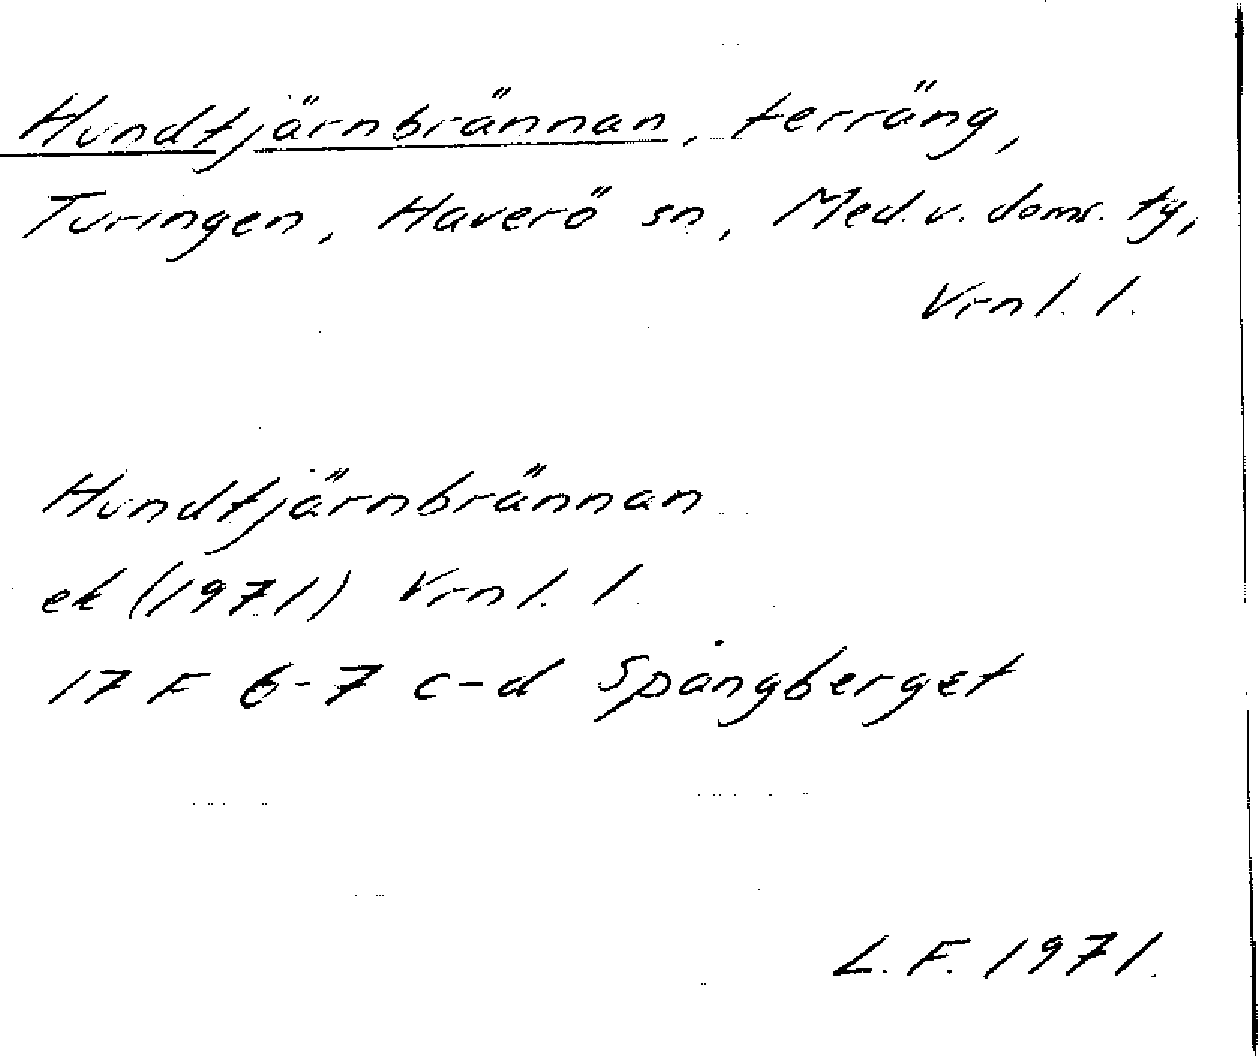 Hundtjärnbrännan, terräng,
Turingen, Haverö sn, Med.v. doms. tg,
Vrnl. l.
Hundtjärnbrännan
ek (1971) Vrnl. l.
17 F 6-7 c-d Spångberget
L.F. 1971.